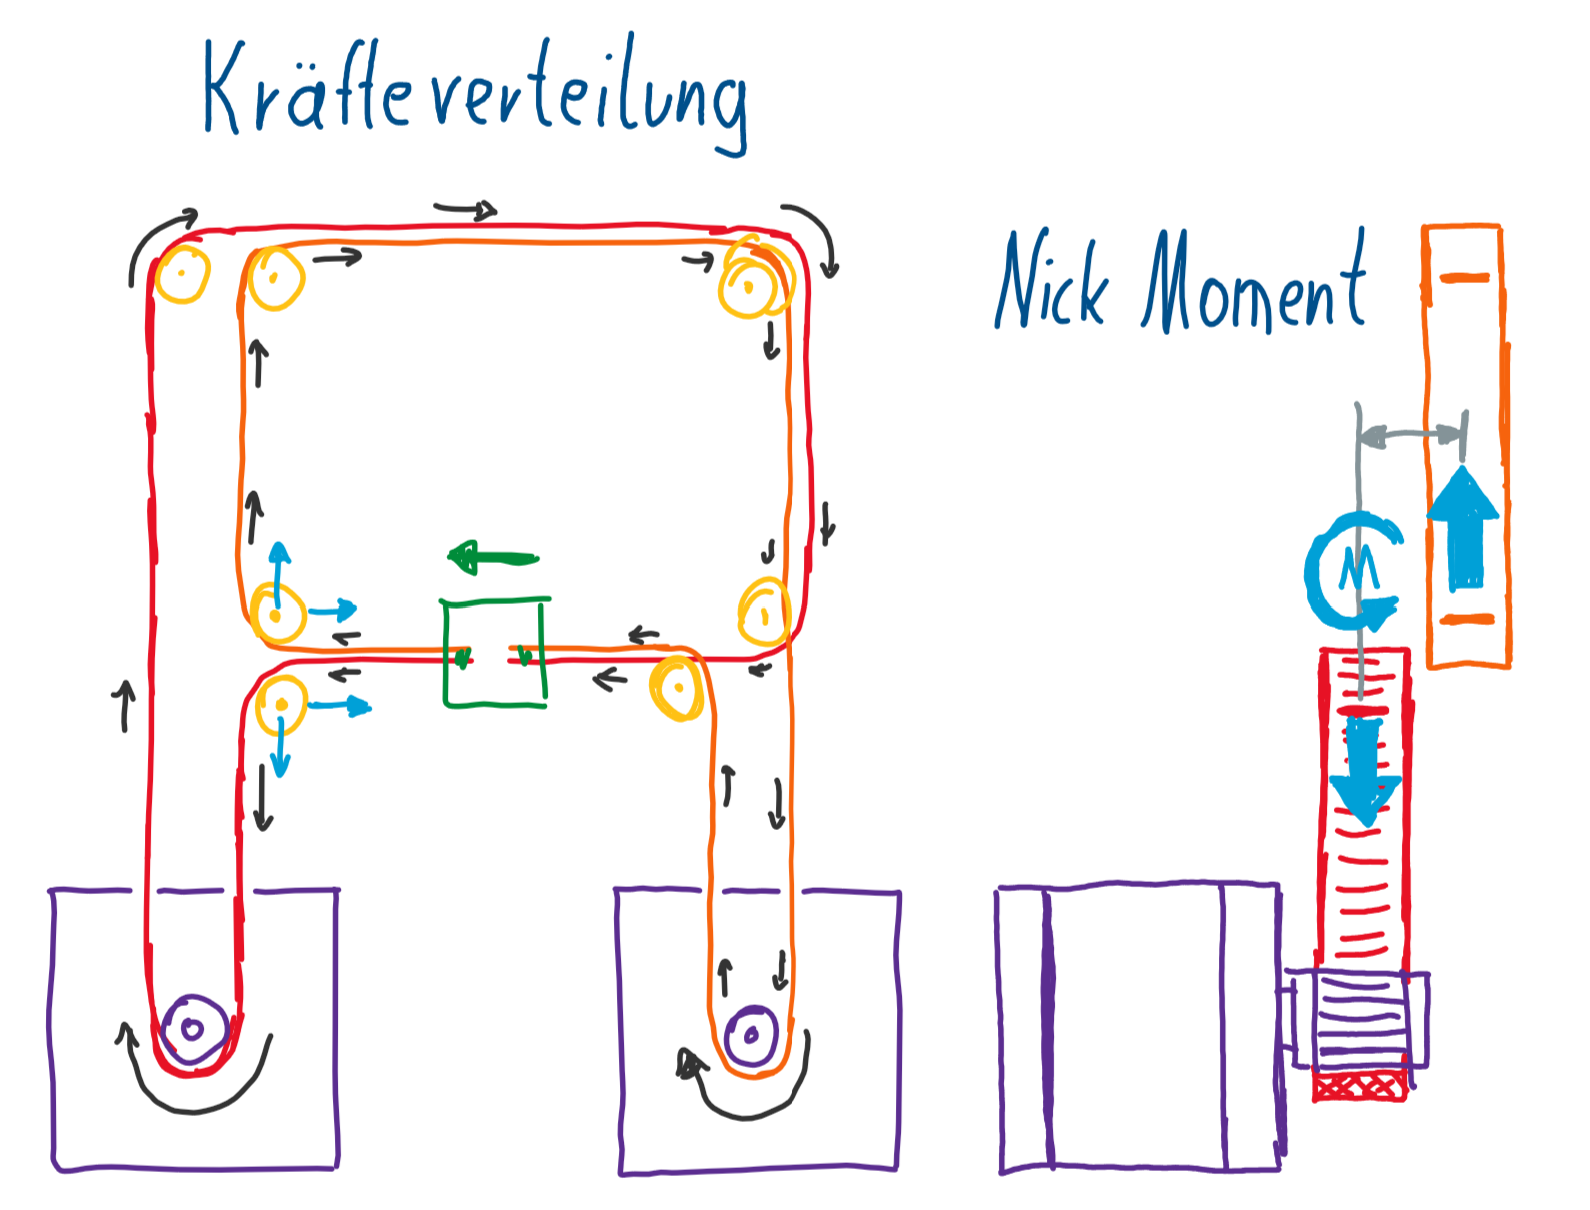 Kräfteverteilung
Nick Moment
M